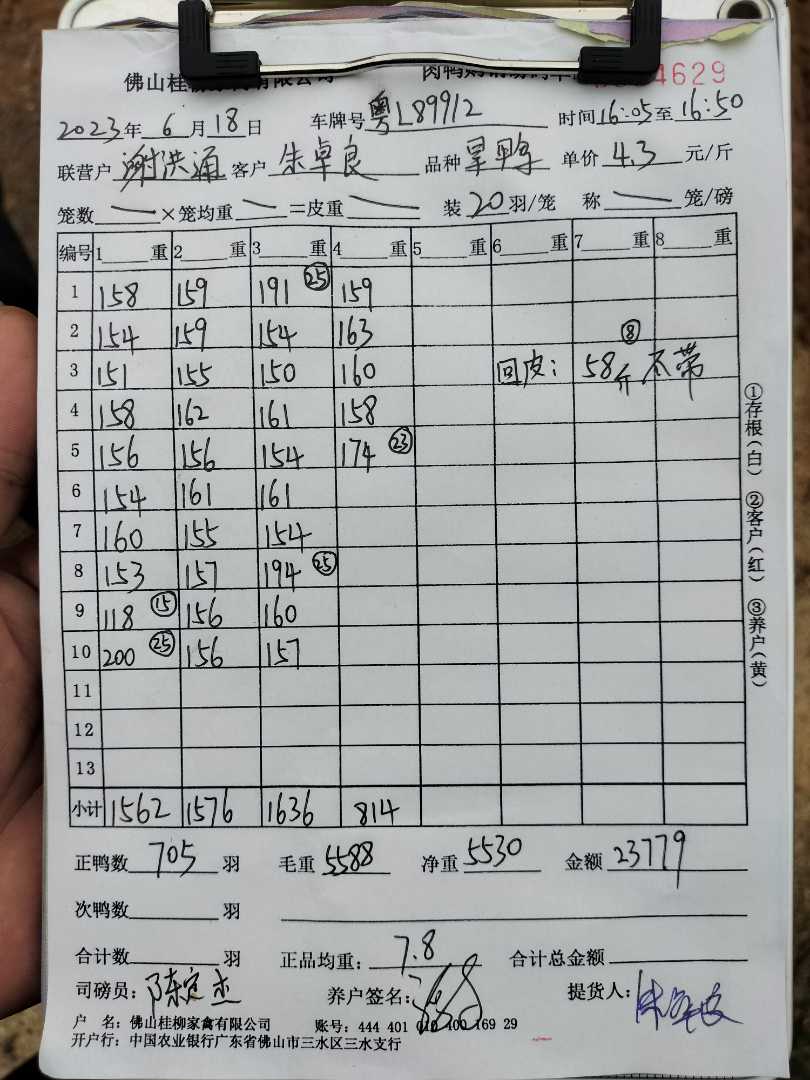 佛山桂柳家禽有限公司 肉鸭购销 4629
2023年 6 月 18 日 车牌号 粤L89912 时间 16:05 至 16:50
联营户 谢洪通 客户 朱卓良 品种 旱鸭 单价 4.3 元/斤
笼数 — ×笼均重 — =皮重 — 装 20 羽/笼 称 — 笼/磅
编号 1 重 2 重 3 重 4 重 5 重 6 重 7 重 8 重
1 158 159 191 ㉕ 159
2 154 159 154 163 ⑧
3 151 155 150 160 回皮: 58斤不带
4 158 162 161 158
5 156 156 154 174 ㉓
6 154 161 161
7 160 155 154
8 153 157 194 ㉕
9 118 ⑮ 156 160
10 200 ㉕ 156 157
11
12
13
小计 1562 1576 1636 814
①存根(白) ②客户(红) ③养户(黄)
正鸭数 705 羽 毛重 5588 净重 5530 金额 23779
次鸭数 羽
合计数 羽 正品均重: 7.8 合计总金额
司磅员: 养户签名: 提货人:
户 名: 佛山桂柳家禽有限公司 账号: 444 401 010 400 169 29
开户行: 中国农业银行广东省佛山市三水区三水支行